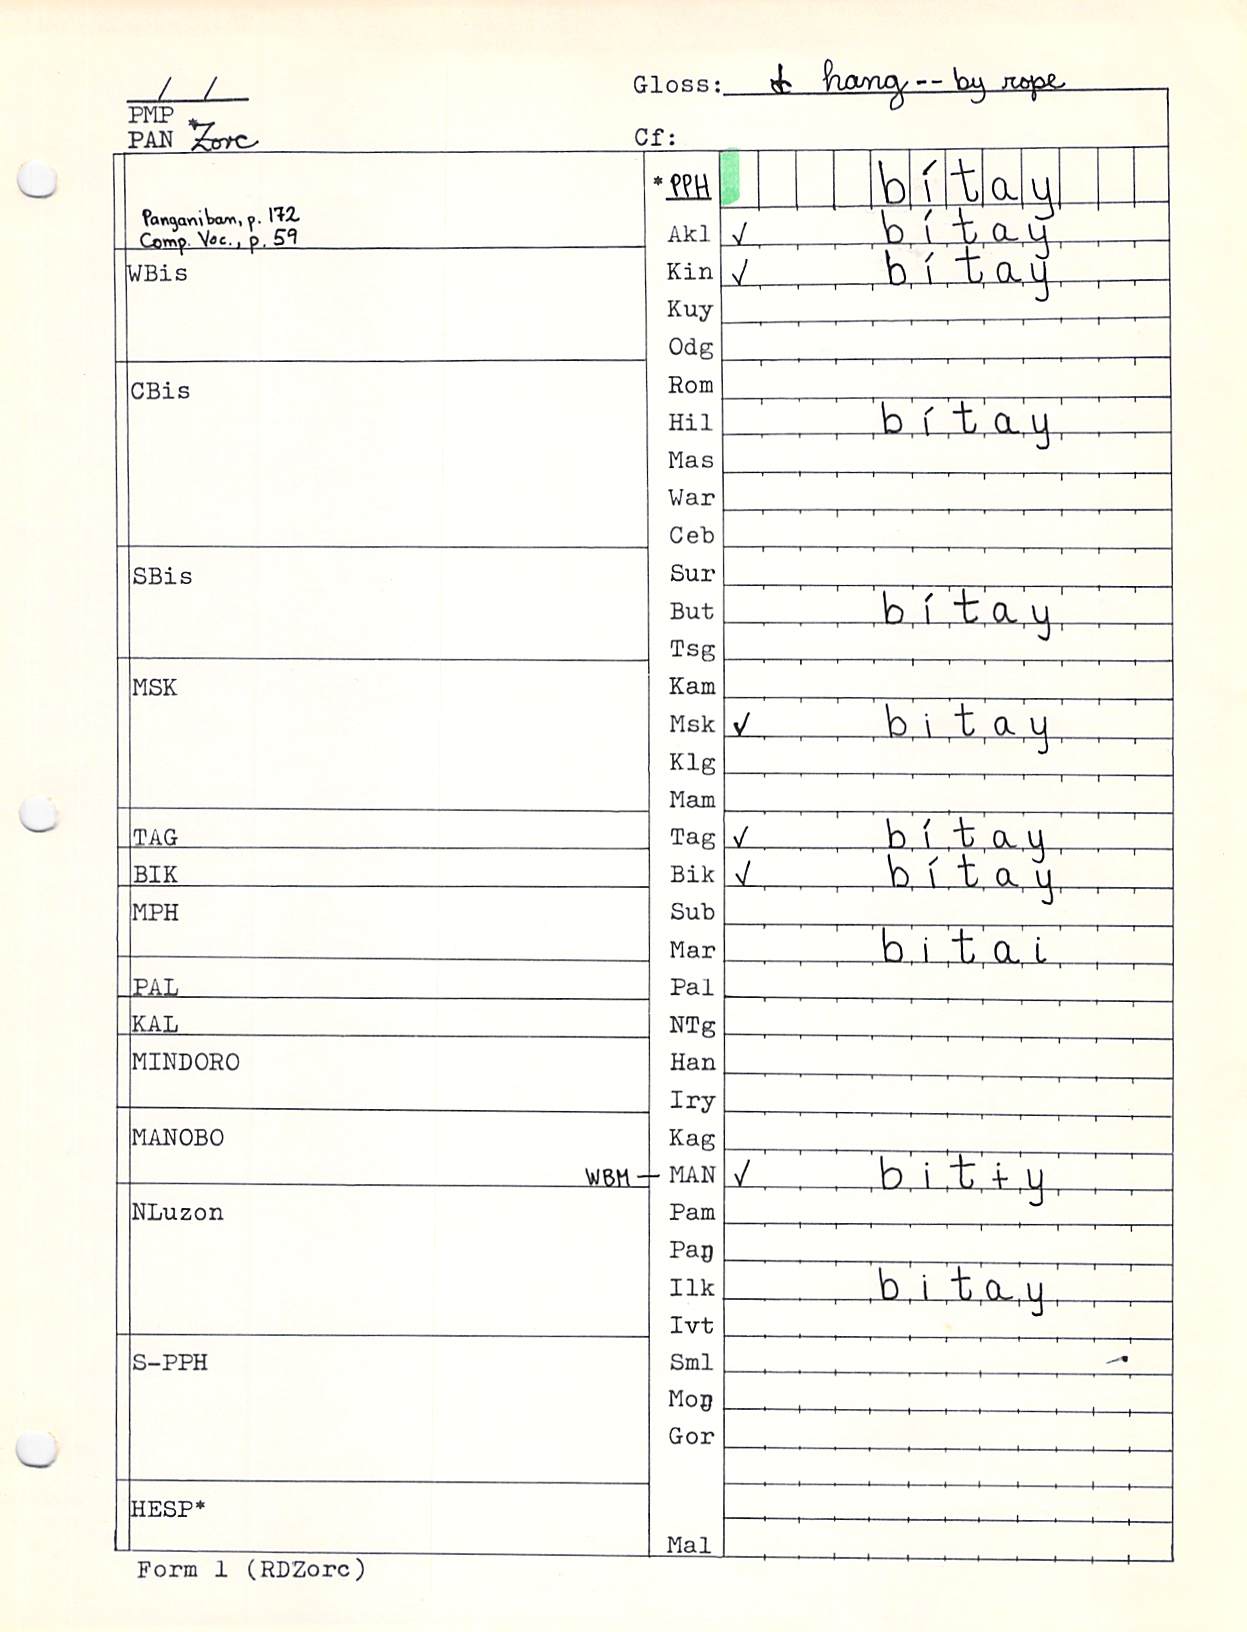 / /
Gloss: hang -- by rope
PMP
PAN *Zorc
Cf:
*PPH bítay
Panganiban, p. 172
Comp. Voc., p. 59
Akl ✓ bítay
WBis
Kin ✓ bítay
Kuy
Odg
Rom
CBis
Hil bítay
Mas
War
Ceb
SBis
Sur
But bítay
Tsg
MSK
Kam
Msk ✓ bitay
Klg
Mam
TAG
Tag ✓ bítay
BIK
Bik ✓ bítay
MPH
Sub
Mar bitai
PAL
Pal
KAL
NTg
MINDORO
Han
Iry
MANOBO
Kag
WBM — MAN ✓ bitɨy
NLuzon
Pam
Paŋ
Ilk bitay
Ivt
S-PPH
Sml
Moŋ
Gor
HESP*
Mal
Form 1 (RDZorc)